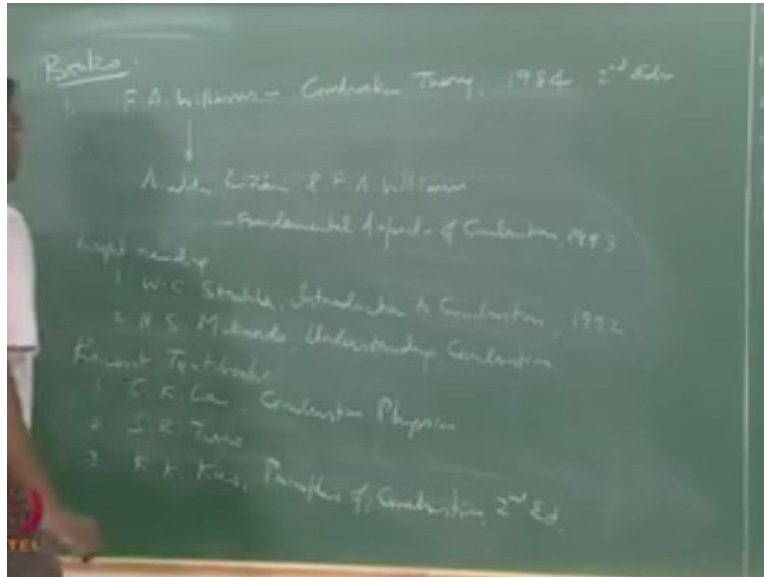 Books:
1. F.A. Williams - Combustion Theory, 1984 2nd Edn
Liñán & F.A. Williams
- Fundamental Aspects of Combustion, 1993
Light reading
1. W.C. Strahle, Introduction to Combustion, 1992
2. H.S. Mukunda, Understanding Combustion
Recent Textbooks
1. C.K. Law, Combustion Physics
2. S.R. Turns
3. K.K. Kuo, Principles of Combustion, 2nd Ed.
TEL